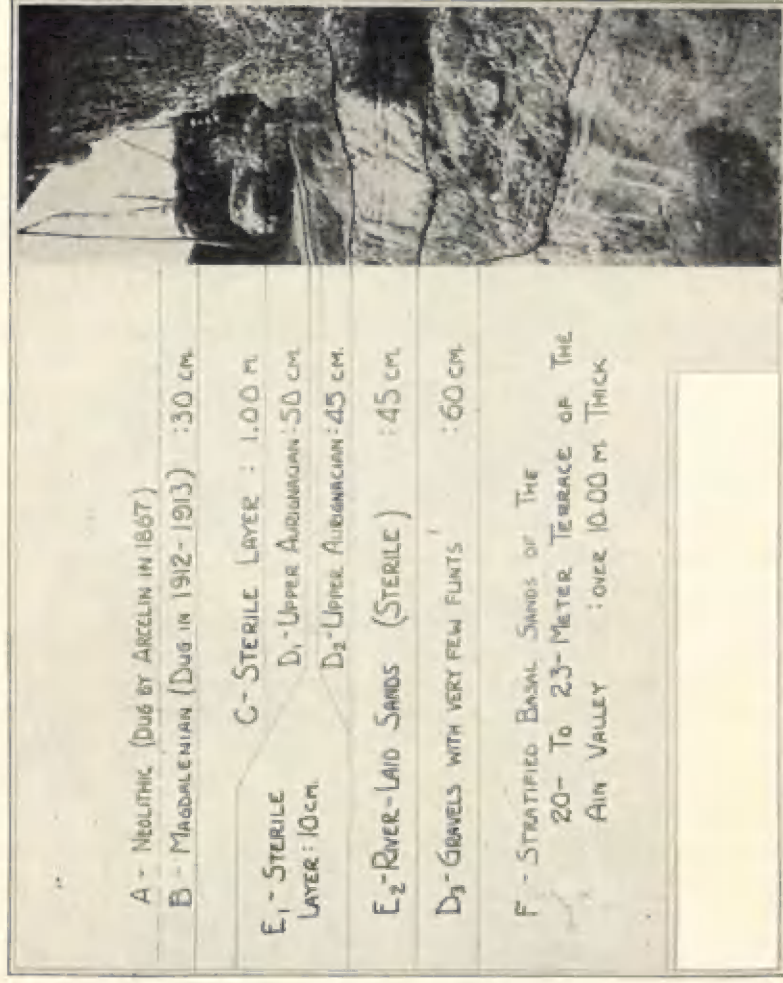 A - NEOLITHIC (DUG BY ARCELIN IN 1867)
B - MAGDALENIAN (DUG IN 1912-1913) : 30 CM.
C - STERILE LAYER : 1.00 M.
D₁ - UPPER AURIGNACIAN : 50 CM.
E₁ - STERILE
LAYER : 10 CM.
D₂ - UPPER AURIGNACIAN : 45 CM.
E₂ - RIVER-LAID SANDS (STERILE) : 45 CM.
D₃ - GRAVELS WITH VERY FEW FLINTS : 60 CM.
F - STRATIFIED BASAL SANDS OF THE
20- TO 23- METER TERRACE OF THE
AIN VALLEY : OVER 10.00 M. THICK